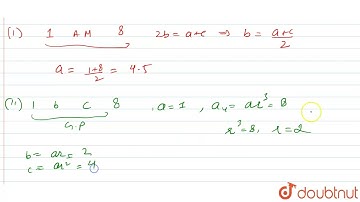 (i) 1 AM 8 2b = a+c ⇒ b = a+c/2
a = 1+8/2 = 4.5
(ii) 1 b c 8 a=1 , a₄ = ar³ = 8
G.P r³=8, r=2
b = ar = 2
c = ar² = 4
doubtnut